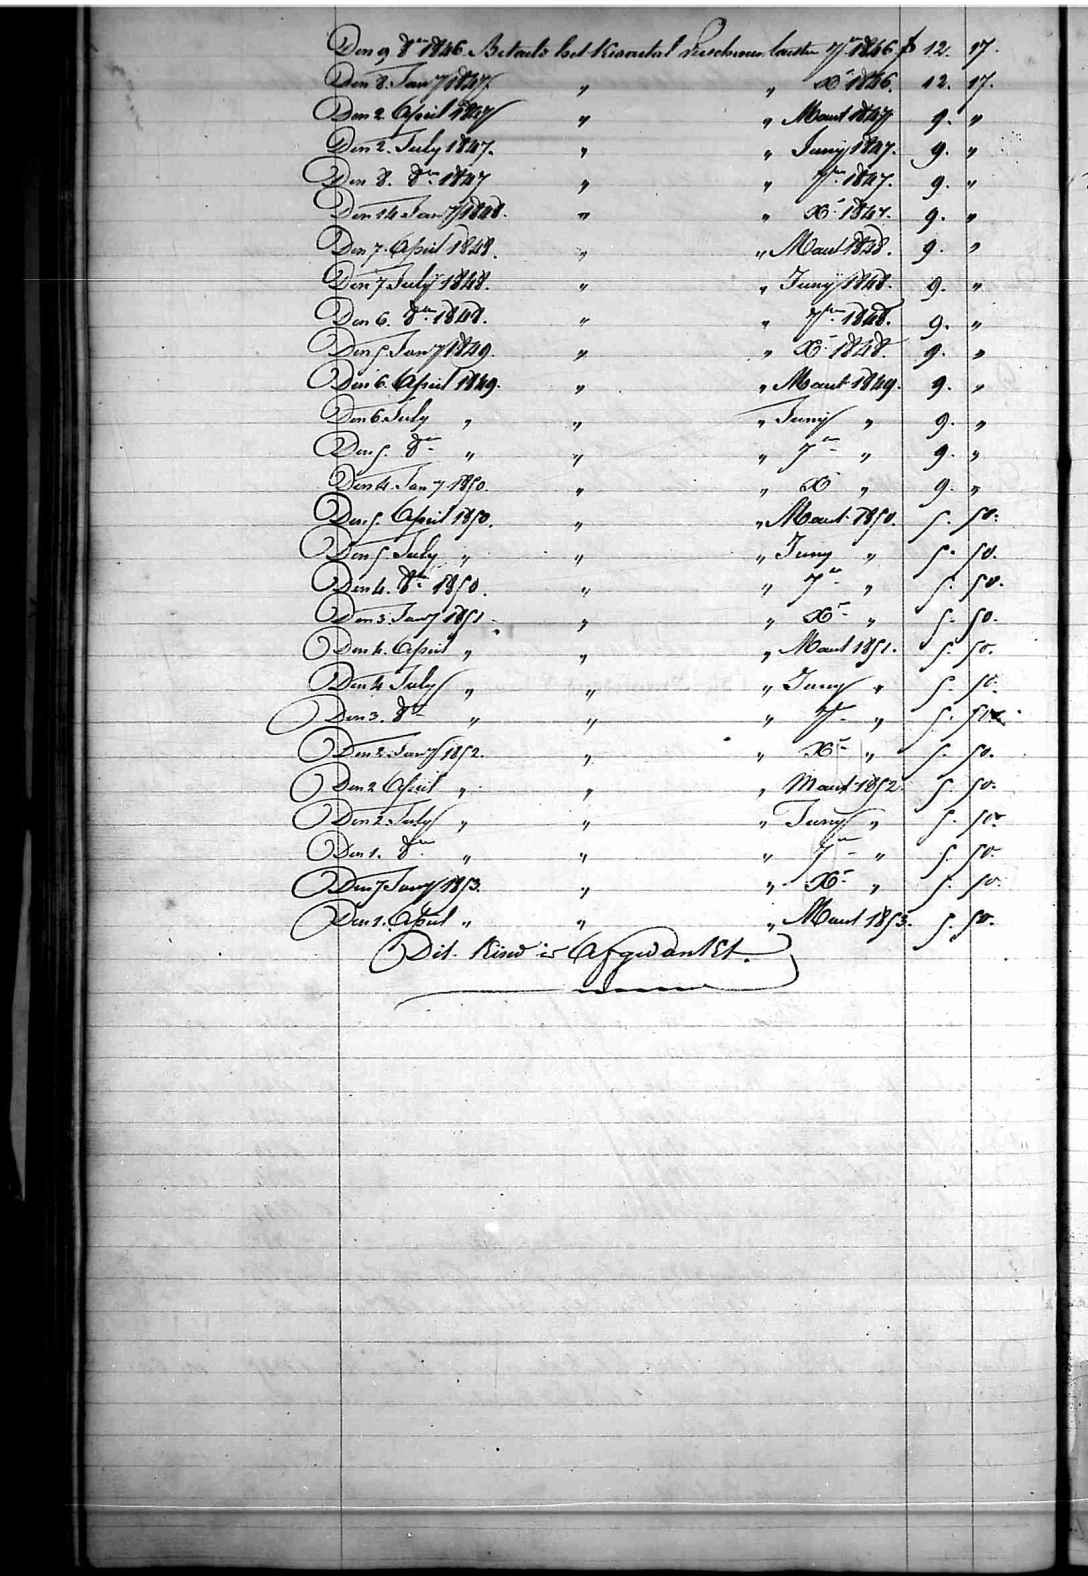 Den 9 8en 1846. Betaald het Kwartal verschenen laatste 7en 1846 f 12. 17.
Den 8. Jany 1847. " " Xr 1846. 12. 17.
Den 2 April 1847 " " Maart 1847 9. "
Den 2. July 1847. " " Juny 1847. 9. "
Den 8. 8en 1847 " " 7en 1847. 9. "
Den 14 Jany 1848. " " Xr 1847. 9. "
Den 7. April 1848. " " Maart 1848. 9. "
Den 7 July 1848. " " Juny 1848. 9. "
Den 6. 8en 1848. " " 7en 1848. 9. "
Den 5 Jany 1849. " " Xr 1848. 9. "
Den 6. April 1849. " " Maart 1849. 9. "
Den 6 July " " " Juny " 9. "
Den 5. 8en " " " 7en " 9. "
Den 4. Jany 1850. " " Xr " 9. "
Den 5. April 1850. " " Maart 1850. 5. 50.
Den 5. July " " " Juny " 5. 50.
Den 4. 8en 1850. " " 7en " 5. 50.
Den 3. Jany 1851. " " Xr " 5. 50.
Den 4. April " " " Maart 1851. 5. 50.
Den 4 July " " " Juny " 5. 50.
Den 3. 8en " " " 7en " 5. 50.
Den 2. Jany 1852. " " Xr " 5. 50.
Den 2 April " " " Maart 1852 5. 50.
Den 2. July " " " Juny " 5. 50.
Den 1. 8en " " " 7en " 5. 50.
Den 7 Jany 1853. " " Xr " 5. 50.
Den 1. April " " " Maart 1853. 5. 50.
Dit Kind is Afgedankt.